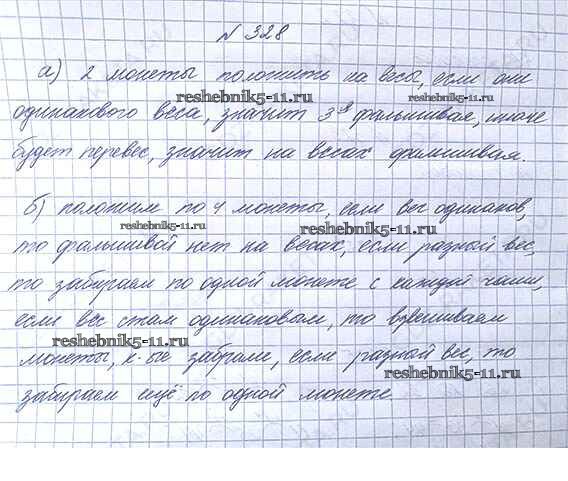 N 328
а) 2 монеты положить на весы, если они
reshebnik5-11.ru reshebnik5-11.ru
одинакового веса, значит 3я фальшивая, иначе
будет перевес, значит на весах фальшивая.
б) положим по 4 монеты, если вес одинаков,
reshebnik5-11.ru reshebnik5-11.ru
то фальшивой нет на весах, если разный вес,
то забираем по одной монете с каждой чаши,
если вес стал одинаковым, то взвешиваем
reshebnik5-11.ru
монеты, к-ые забрали, если разный вес, то
reshebnik5-11.ru
забираем ещё по одной монете